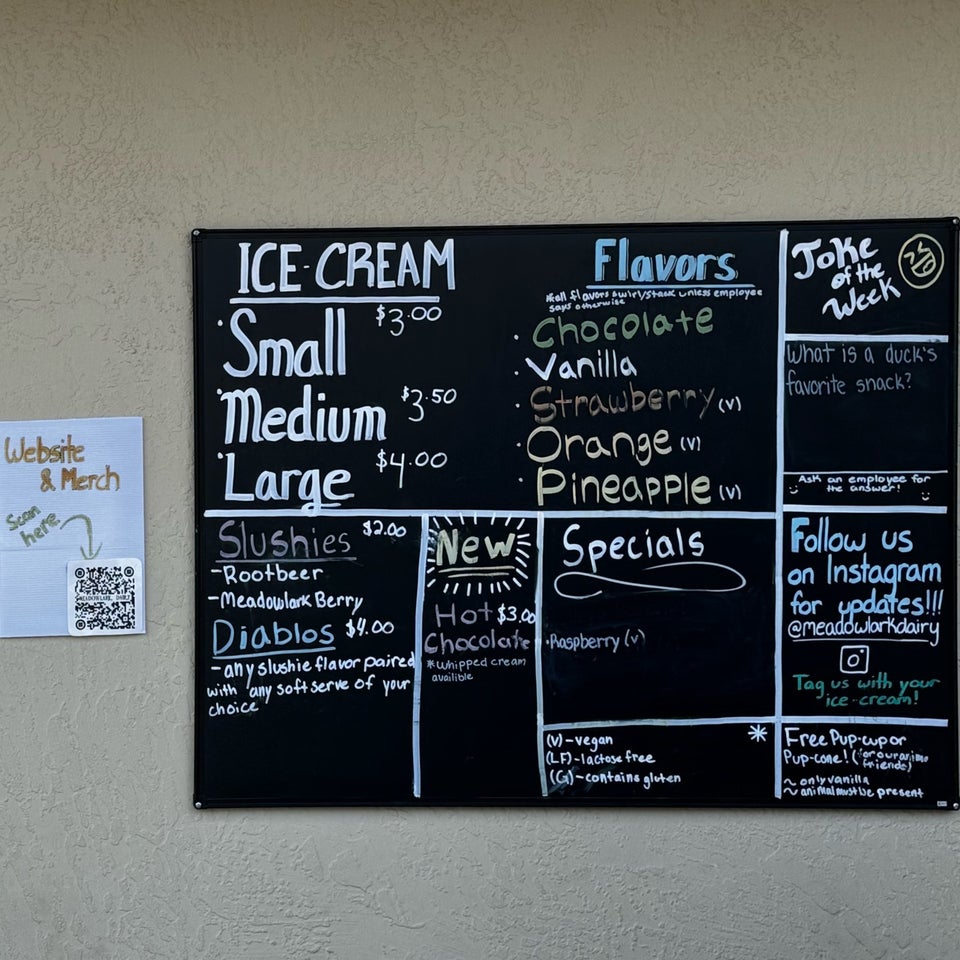 ICE-CREAM
• Small $3.00
• Medium $3.50
• Large $4.00
Flavors
*all flavors swirl/stack unless employee
says otherwise
• Chocolate
• Vanilla
• Strawberry (V)
• Orange (V)
• Pineapple (V)
Joke
of the
Week
What is a duck's
favorite snack?
Ask an employee for
the answer!
Website
& Merch
Scan
here
MEADOWLARK DAIRY
Slushies $2.00
-Rootbeer
-Meadowlark Berry
Diablos $4.00
-any slushie flavor paired
with any soft serve of your
choice
New
Hot $3.00
Chocolate
*whipped cream
availible
Specials
•Raspberry (v)
(V)-vegan
(LF)-lactose free
(G)-contains gluten
*
Follow us
on Instagram
for updates!!!
@meadowlarkdairy
Tag us with your
ice-cream!
Free Pup-cup or
Pup-cone! (for our
friends)
~ only vanilla
~ animal must be present